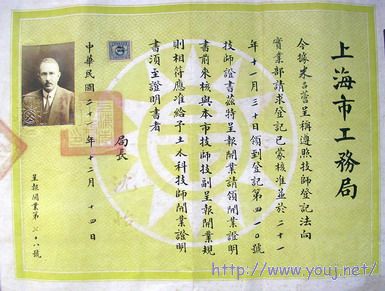 上海市工務局
今據呈稱遵照技師登記法向
實業部請求登記已蒙核准並於二十一
年十一月三十日領到登記第四一〇號
技師證書茲特呈報開業請領開業證明
書前來核與本市技師技副呈報開業規
則相符應准給予土木科技師開業證明
書須至證明書者
局長
中華民國二十一年十二月十四日
呈報開業第十八號
http://www.youj.net/